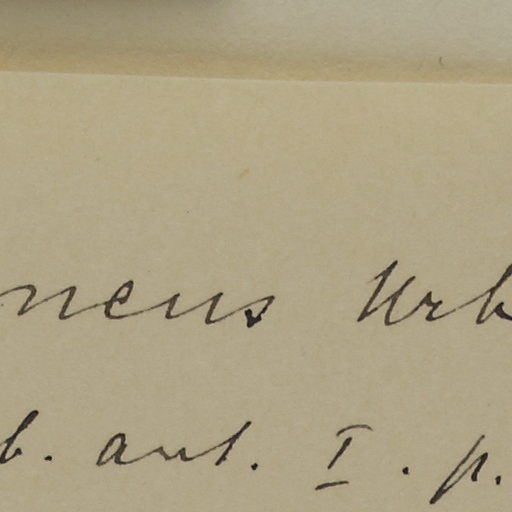 neus Urb
b. ant. I. p.